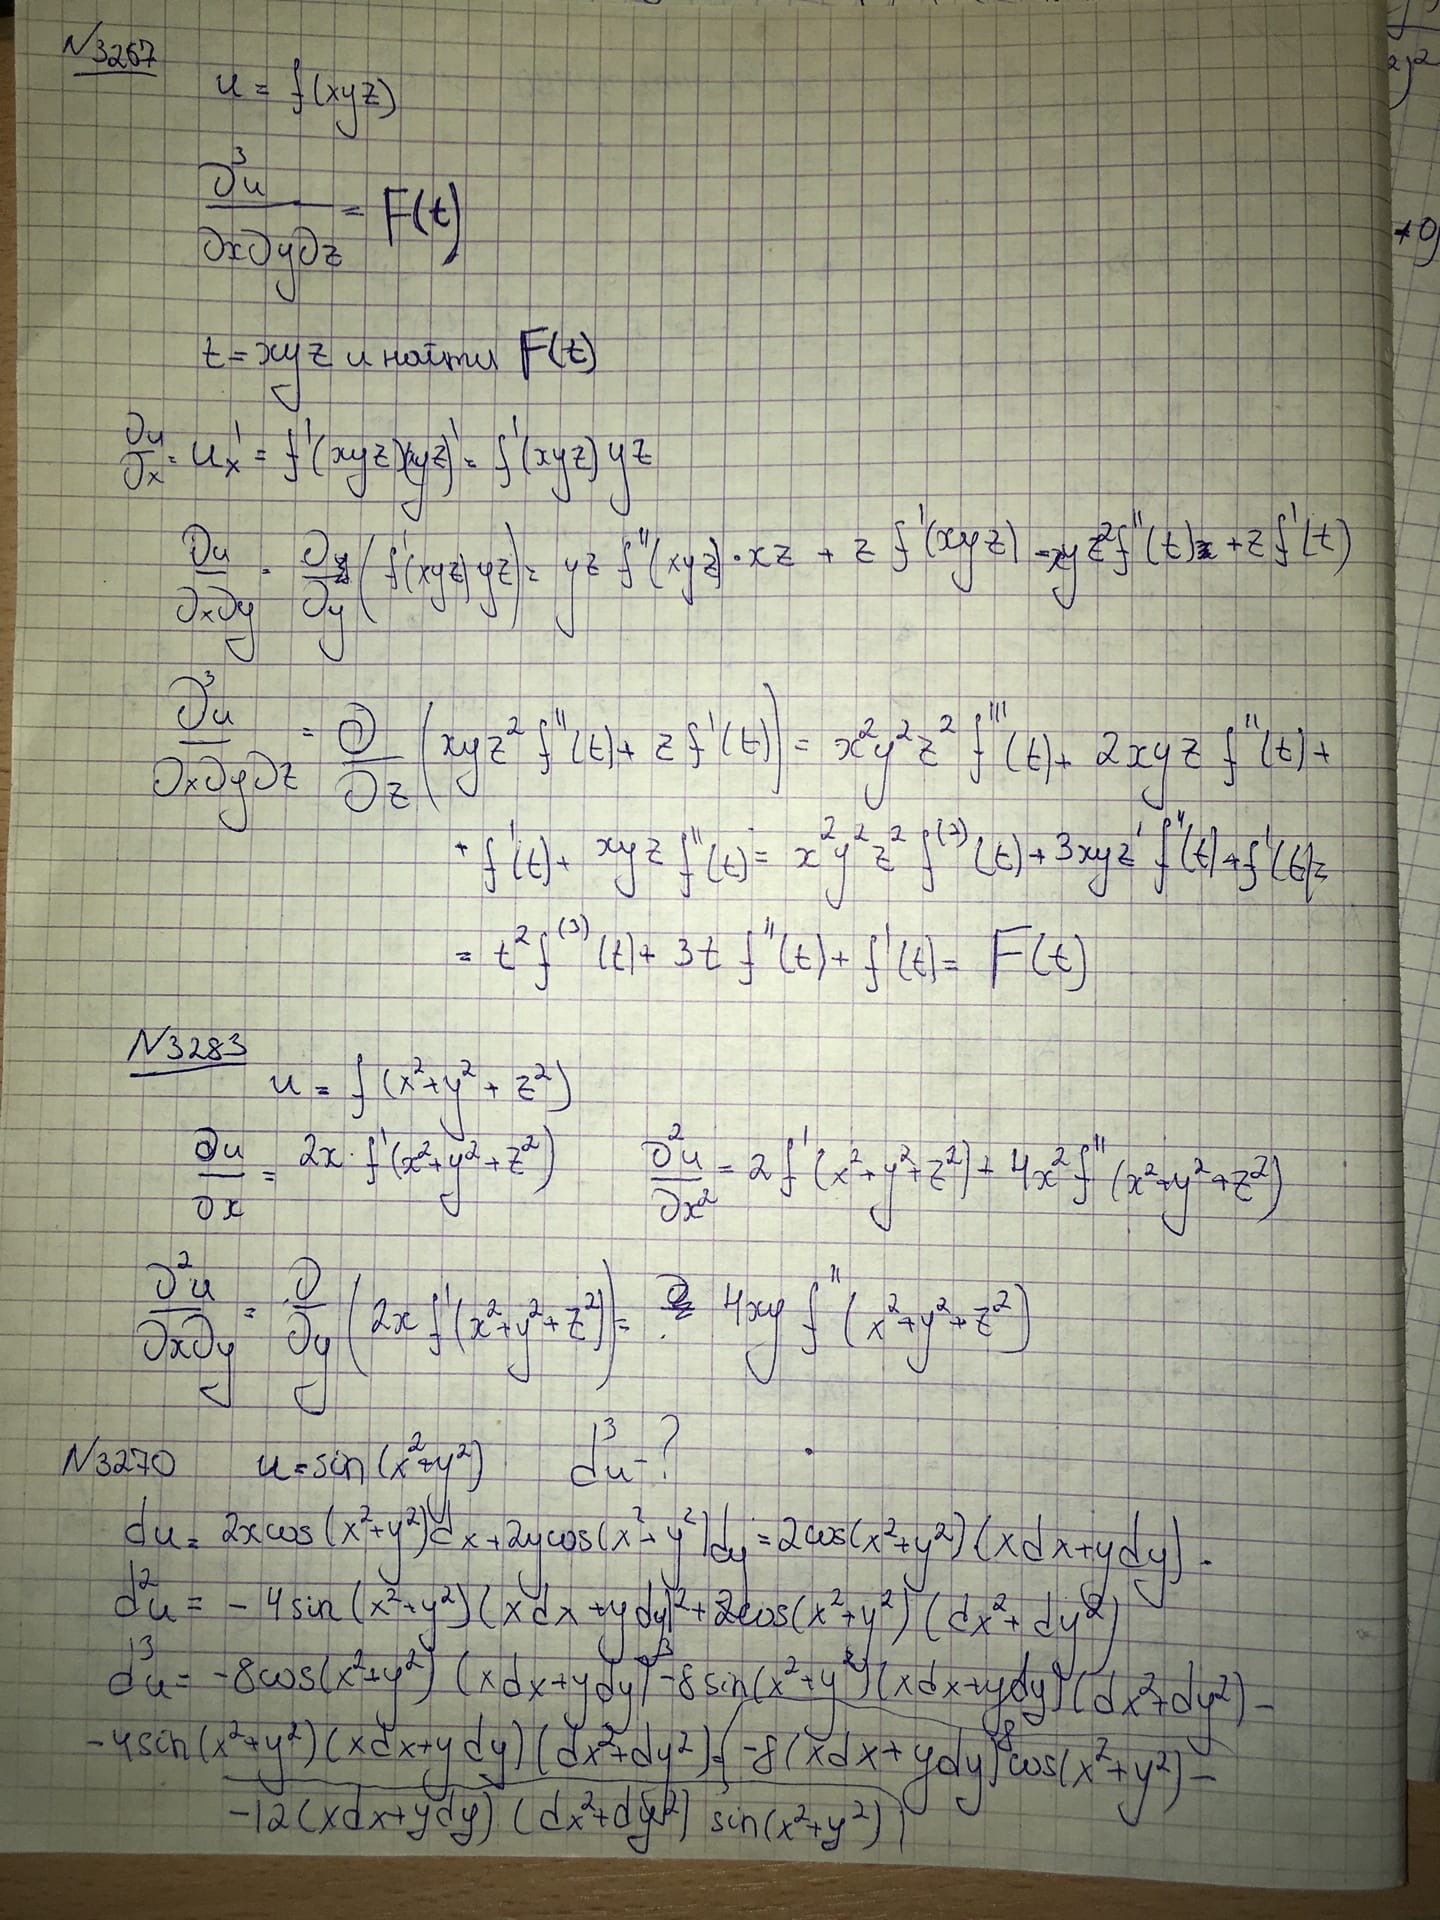 N3267
u = f(xyz)
∂³u/∂x∂y∂z = F(t)
t = xyz и найти F(t)
∂u/∂x = u'ₓ = f'(xyz)(xyz)' = f'(xyz) yz
∂u/∂x∂y = ∂/∂y (f'(xyz) yz) = yz f''(xyz)·xz + z f'(xyz) = xyz² f''(t) + z f'(t)
∂³u/∂x∂y∂z = ∂/∂z (xyz² f''(t) + z f'(t)) = x²y²z² f'''(t) + 2xyz f''(t) +
+ f'(t) + xyz f''(t) = x²y²z² f⁽³⁾(t) + 3xyz f''(t) + f'(t) =
= t² f⁽³⁾(t) + 3t f''(t) + f'(t) = F(t)
N3283
u = f(x²+y²+z²)
∂u/∂x = 2x·f'(x²+y²+z²) ∂²u/∂x² = 2f'(x²+y²+z²) + 4x² f''(x²+y²+z²)
∂²u/∂x∂y = ∂/∂y (2x f'(x²+y²+z²)) = 4xy f''(x²+y²+z²)
N3270 u = sin(x²+y²) d³u - ?
du = 2x cos(x²+y²)dx + 2y cos(x²+y²)dy = 2cos(x²+y²)(xdx+ydy).
d²u = -4sin(x²+y²)(xdx+ydy)² + 2cos(x²+y²)(dx²+dy²)
d³u = -8cos(x²+y²)(xdx+ydy)³ - 8sin(x²+y²)(xdx+ydy)(dx²+dy²) -
- 4sin(x²+y²)(xdx+ydy)(dx²+dy²) = -8(xdx+ydy)³cos(x²+y²) -
- 12(xdx+ydy)(dx²+dy²) sin(x²+y²)